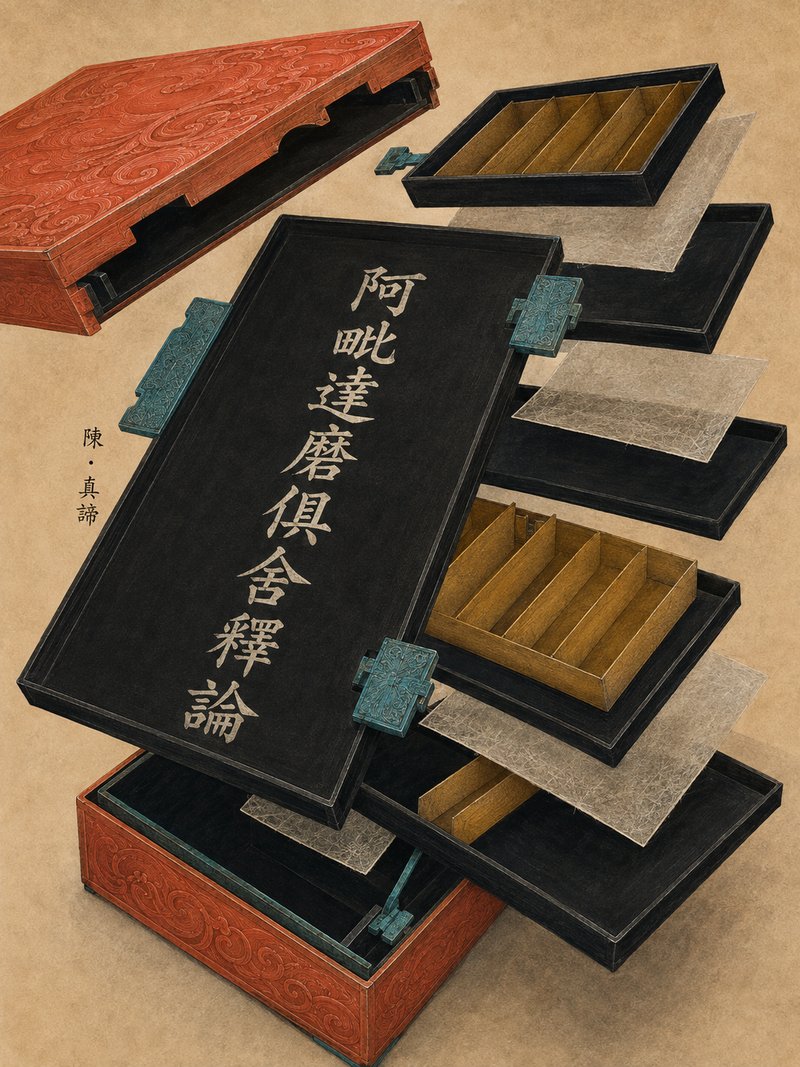 阿毗達磨俱舍釋論
陳・真諦